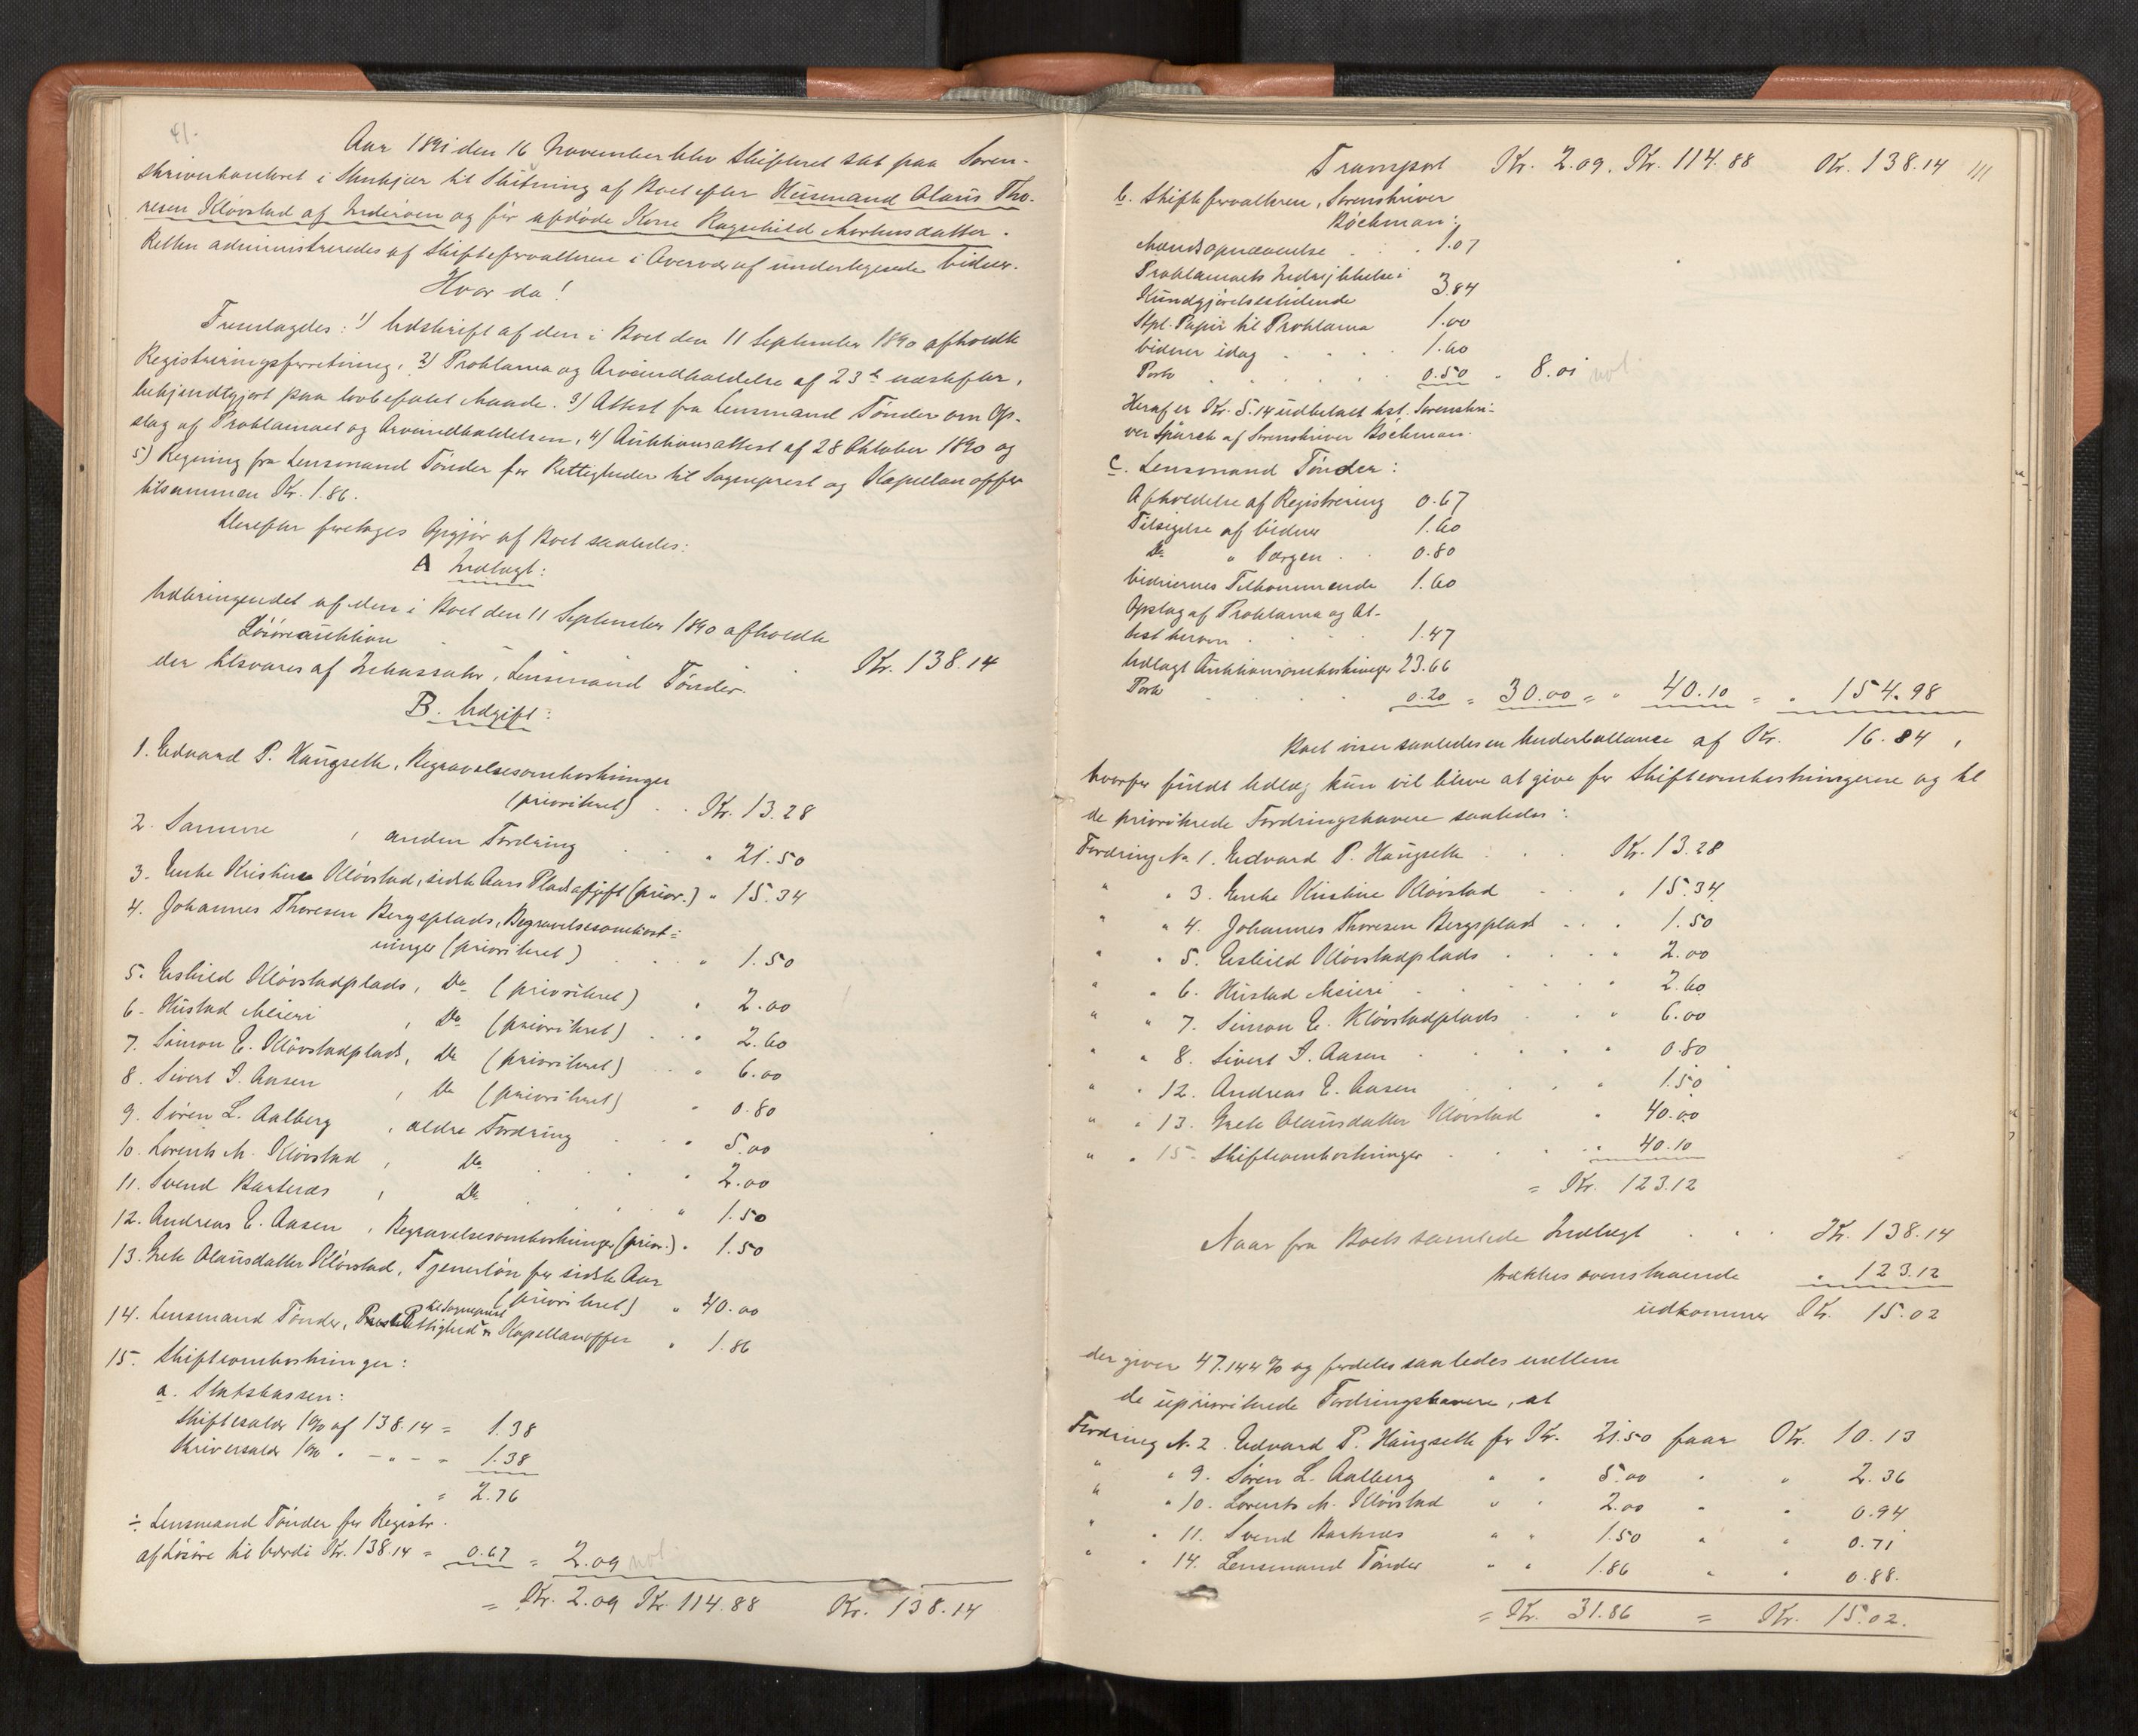 41.
Aar 1891 den 16 November blev Skifteret sat paa Soren-
skriverkontoret i Stenkjær til Slutning af Boet efter Husmand Olaus Tho-
resen Kløvstad af Inderøen og før afdøde Kone Ragnhild Mortensdatter.
Retten administreredes af Skifteforvalteren i Overvær af underlegnede Vidner.
Hvor da!
Fremlagdes: 1) Udskrift af den i Boet den 11 September 1890 afholdte
Registreringsforretning, 2) Proklama og Arveindkaldelse af 23de næstefter,
bekjendtgjort paa lovbefalet Maade. 3) Attest fra Lensmand Tønder om Op-
slag af Proklamaet og Arveindkaldelsen, 4) Auktionsattest af 28 Oktober 1890 og
5) Regning fra Lensmand Tønder for Rettigheder til Sogneprest og Kapellanoffer
tilsammen Kr. 1.86.
Herefter foretages Opgjør af Boet saaledes:
A Indtægt:
Udbringendet af den i Boet den 11 September 1890 afholdte
Løsøreauktion
der tilsvares af Inkassator, Lensmand Tønder. Kr. 138.14
B. Udgift:
1. Edvard P. Haugseth, Begravelsesomkostninger
(prioriteret) . . Kr. 13.28
2. Samme , anden Fordring . . " 21.50
3. Enke Kristine Kløvstad, sidste Aars Pladsafgift (prior.) " 15.34
4. Johannes Thoresen Bergsplads, Begravelsesomkost=
ninger (prioriteret) . . . " 1.50
5. Eskild Kløvstadplads, Do (prioriteret) " 2.00
6. Hustad Meieri , Do (prioriteret) . . " 2.60
7. Simon E. Kløvstadplads, Do (prioriteret) . . " 6.00
8. Sivert I. Aasen , Do (prioriteret) " 0.80
9. Søren L. Aalberg , ældre Fordring . . " 5.00
10. Lorents M. Kløvstad , Do . . . " 2.00
11. Svend Bartnes , Do . . . " 1.50
12. Andreas E. Aasen , Begravelsesomkostninger (prior.) " 1.50
13. Grete Olausdatter Kløvstad, Tjenerløn for sidste Aar
(prioriteret) " 40.00
14. Lensmand Tønder, Rettighed til Sogneprest Kapellanoffer " 1.86
15. Skifteomkostninger:
a. Statskassen:
Skiftesalær 1% af 138.14 = 1.38
Skriversalær 1% " - " - = 1.38
= 2.76
÷ Lensmand Tønder for Registr.
af Løsøre til Værdi Kr. 138.14 = 0.67 = 2.09 not
= Kr. 2.09 Kr. 114.88 Kr. 138.14
Transport Kr. 2.09. Kr. 114.88 Kr. 138.14
b. Skifteforvalteren, Sorenskriver
Bøckman:
Mændsopnævnelse . . 1.07
Proklamaets Indrykkelse i
Kundgjørelsestidende 3.84
Stpl. Papir til Proklama 1.00
Vidner idag . . . 1.60
Porto . . . . 0.50 = 8.01 not
Heraf er Kr. 5.14 udbetalt kst. Sorenskri-
ver Sparck af Sorenskriver Bøckman.
c. Lensmand Tønder:
Afholdelse af Registrering 0.67
Tilsigelse af Vidner 1.60
Do " Værgen . . 0.80
Vidnernes Tilkommende 1.60
Opslag af Proklama og At-
test herom . . . 1.47
Udlagt Auktionsomkostninger 23.66
Porto . . . 0.20 = 30.00 = " 40.10 = " 154.98
Boet viser saaledes en Underballance af Kr. 16.84,
hvorfor fuldt Udlæg kun vil blive at give for Skifteomkostningerne og til
de prioriterede Fordringshavere saaledes:
Fordring No 1. Edvard P. Haugseth . . . Kr. 13.28
" " 3. Enke Kristine Kløvstad . . " 15.34
" " 4. Johannes Thoresen Bergsplads . . " 1.50
" " 5. Eskild Kløvstadplads . . . " 2.00
" " 6. Hustad Meieri . . . " 2.60
" " 7. Simon E. Kløvstadplads . . " 6.00
" " 8. Sivert I. Aasen . . . " 0.80
" " 12. Andreas E. Aasen . . . " 1.50
" " 13. Grete Olausdatter Kløvstad " 40.00
" " 15. Skifteomkostninger . . . " 40.10
= Kr. 123.12
Naar fra Boets samlede Indtægt . . . Kr. 138.14
trækkes ovenstaaende " 123.12
udkommer Kr. 15.02
der giver 47.144 % og fordeles saaledes mellem
de uprioriterede Fordringshavere, at
Fordring No 2. Edvard P. Haugseth for Kr. 21.50 faar Kr. 10.13
" " 9. Søren L. Aalberg " " 5.00 " " 2.36
" " 10. Lorents M. Kløvstad " " 2.00 " " 0.94
" " 11. Svend Bartnes " " 1.50 " " 0.71
" " 14. Lensmand Tønder " " 1.86 " " 0.88.
= Kr. 31.86 = Kr. 15.02.